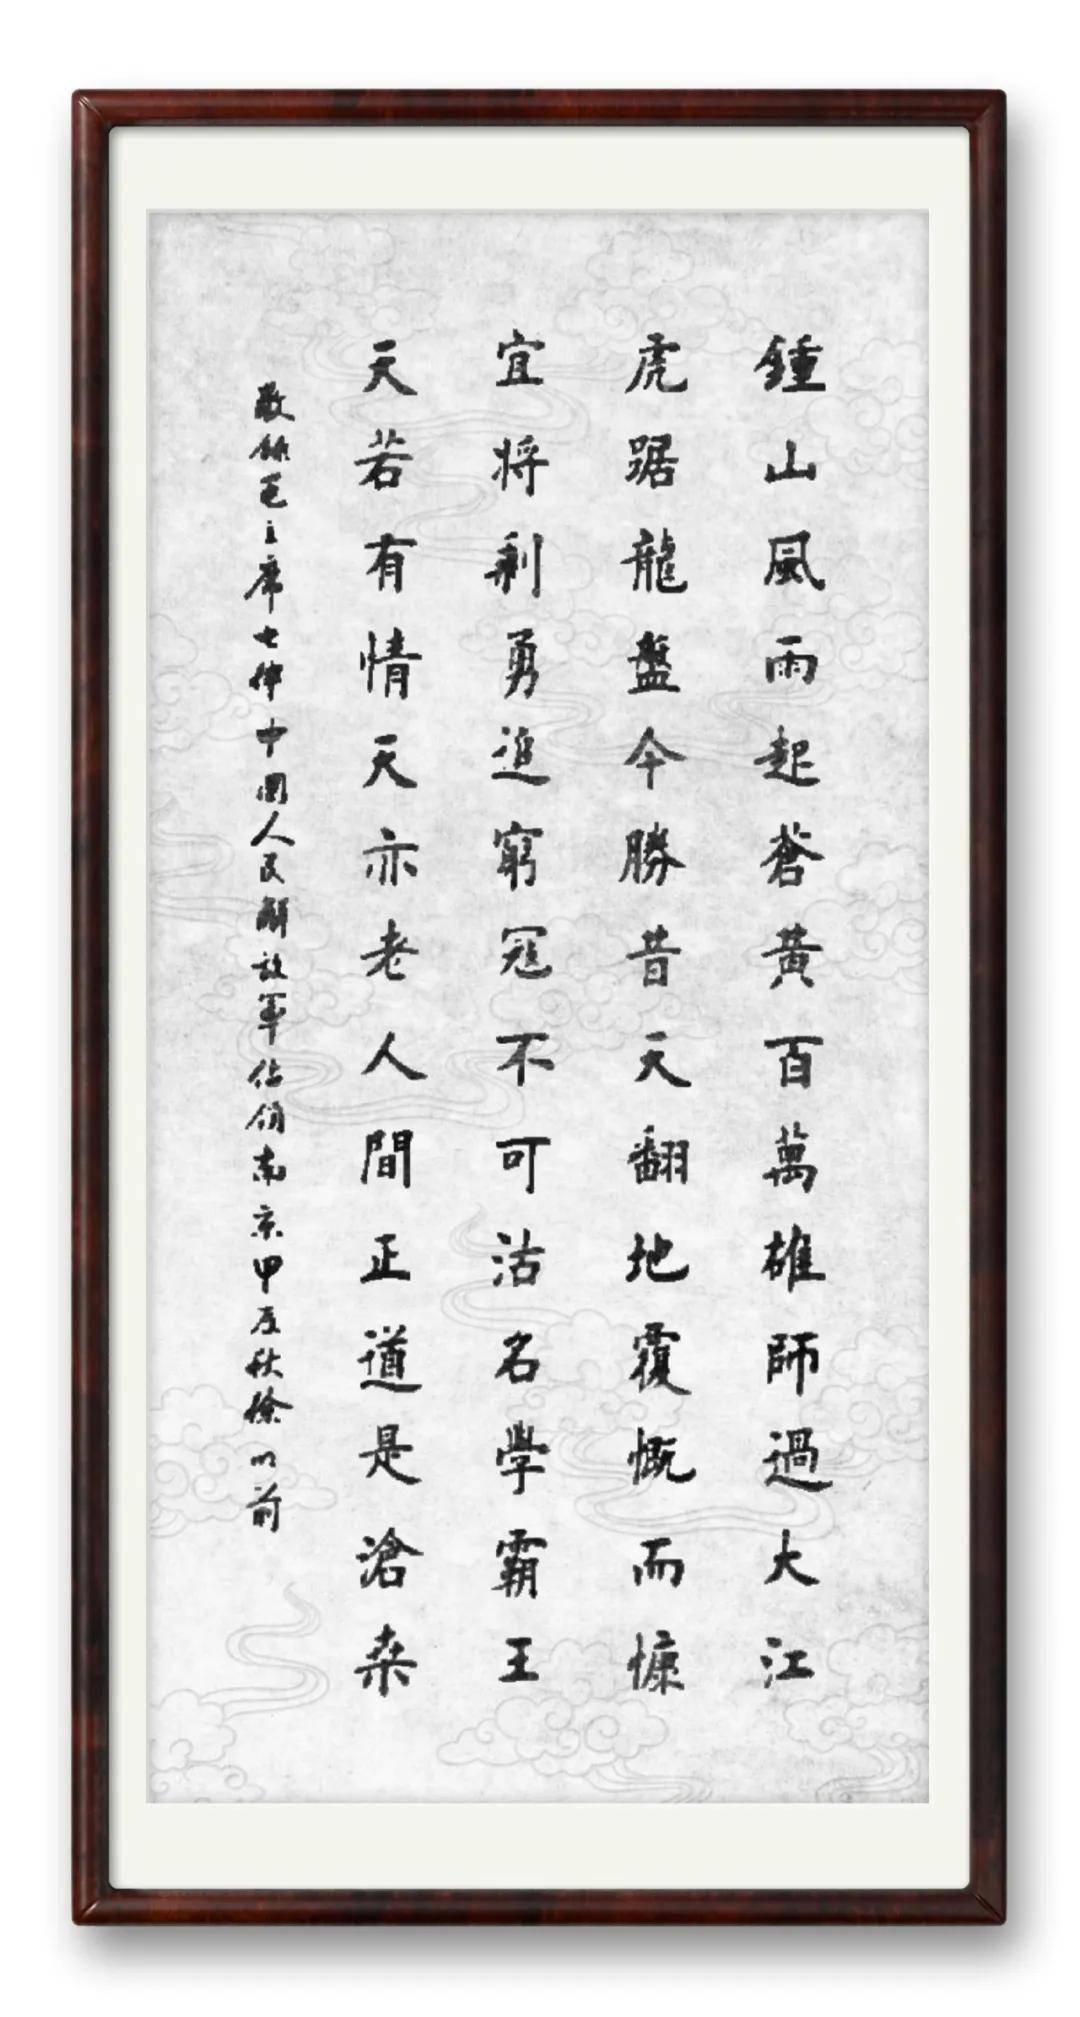 鍾山風雨起蒼黃百萬雄師過大江
虎踞龍盤今勝昔天翻地覆慨而慷
宜將剩勇追窮寇不可沽名學霸王
天若有情天亦老人間正道是滄桒
敬錄毛主席七律中國人民解放軍佔領南京甲辰秋徐以前